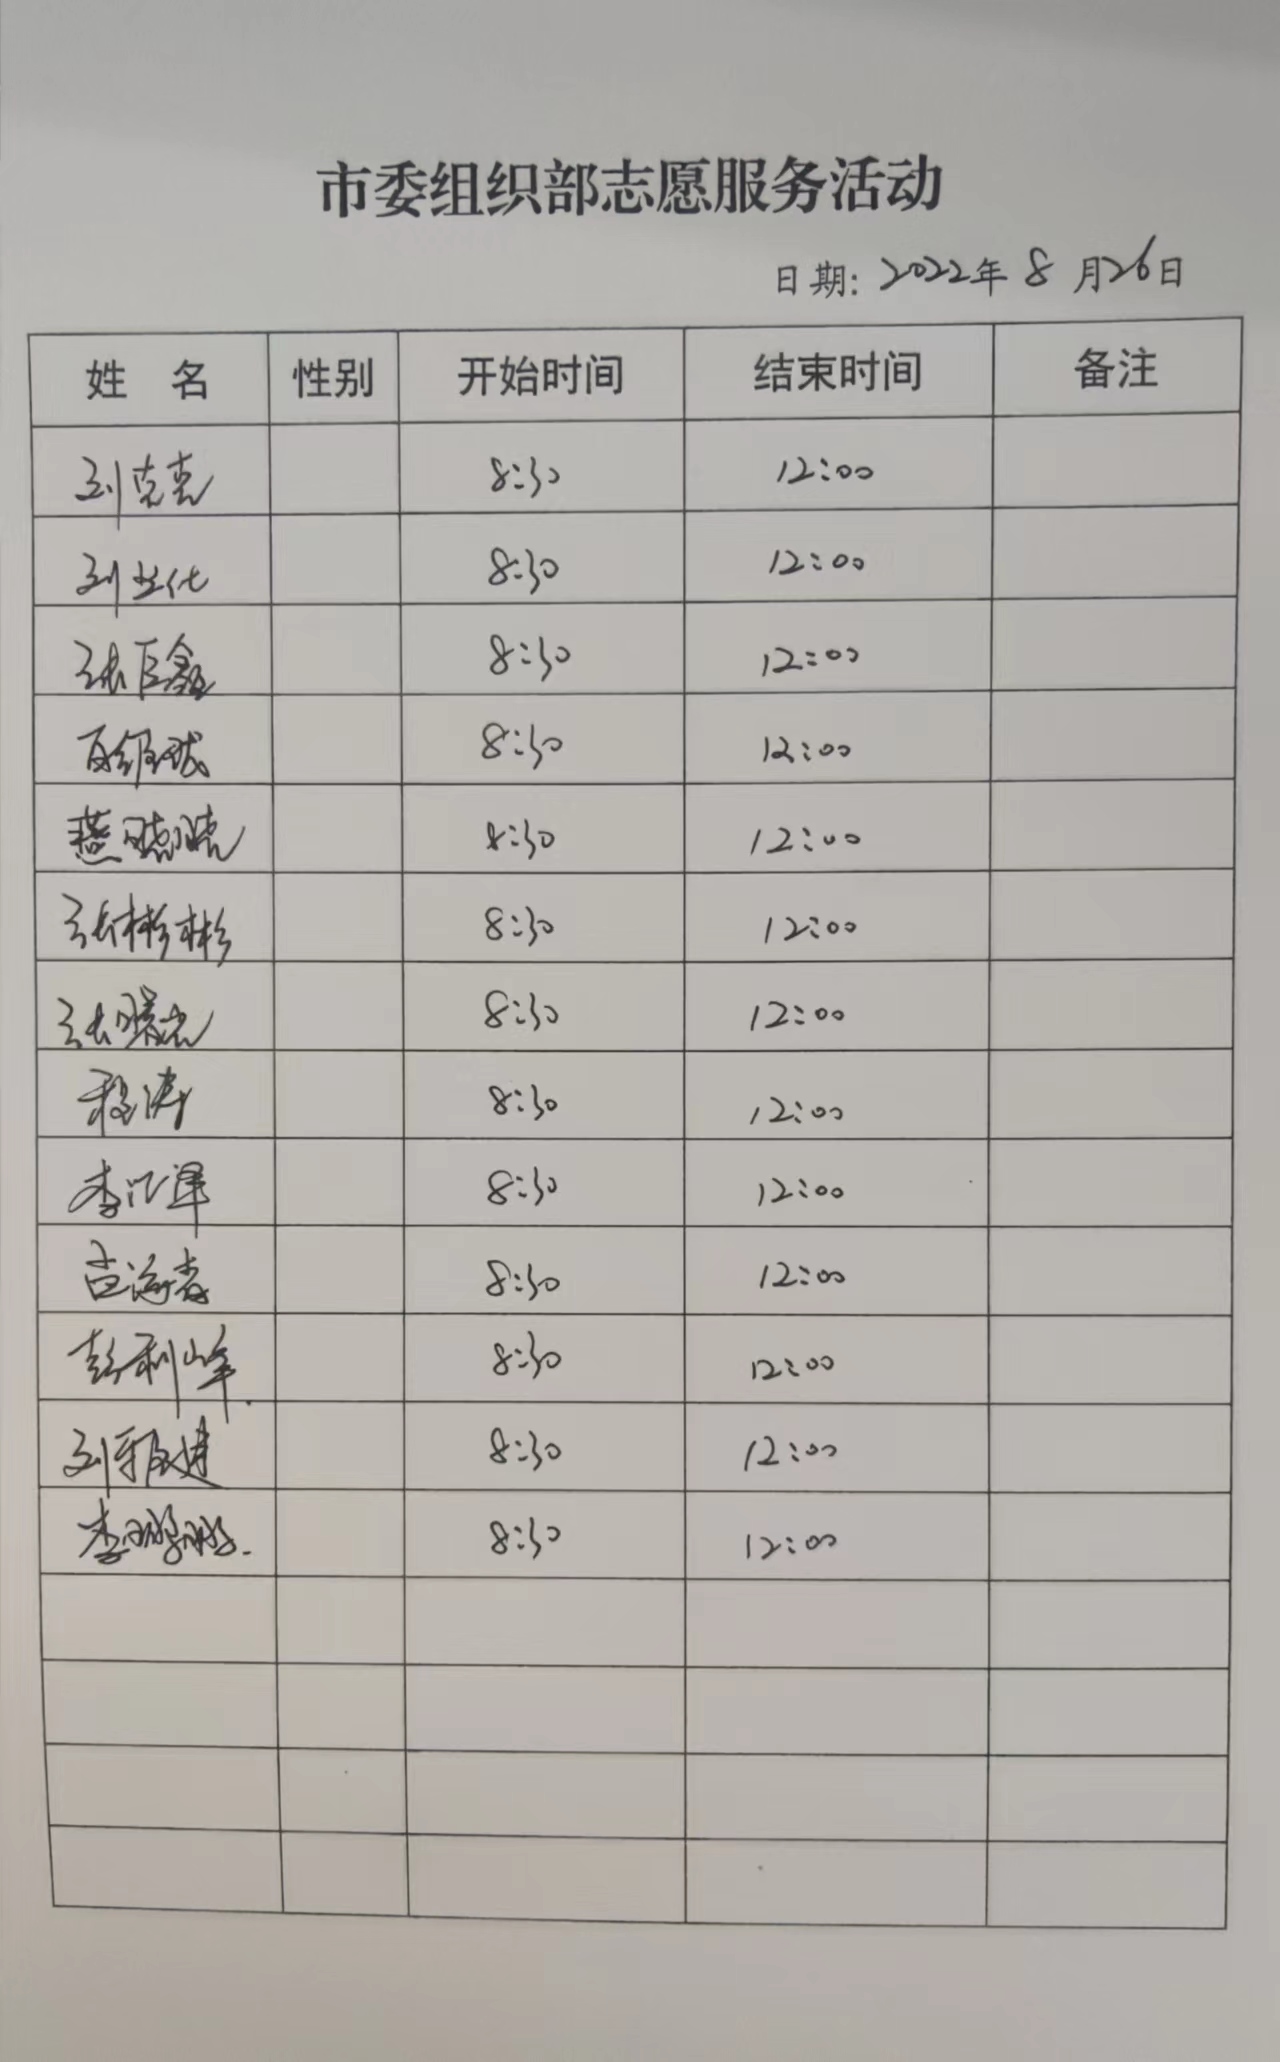 市委组织部志愿服务活动
日期: 2022年 8 月26日
姓 名 性别 开始时间 结束时间 备注
刘克克 8:30 12:00
刘 8:30 12:00
张巨鑫 8:30 12:00
8:30 12:00
燕晓晓 8:30 12:00
张彬彬 8:30 12:00
张曦 8:30 12:00
程涛 8:30 12:00
李 8:30 12:00
8:30 12:00
彭利峰 8:30 12:00
刘 8:30 12:00
李鹏鹏 8:30 12:00